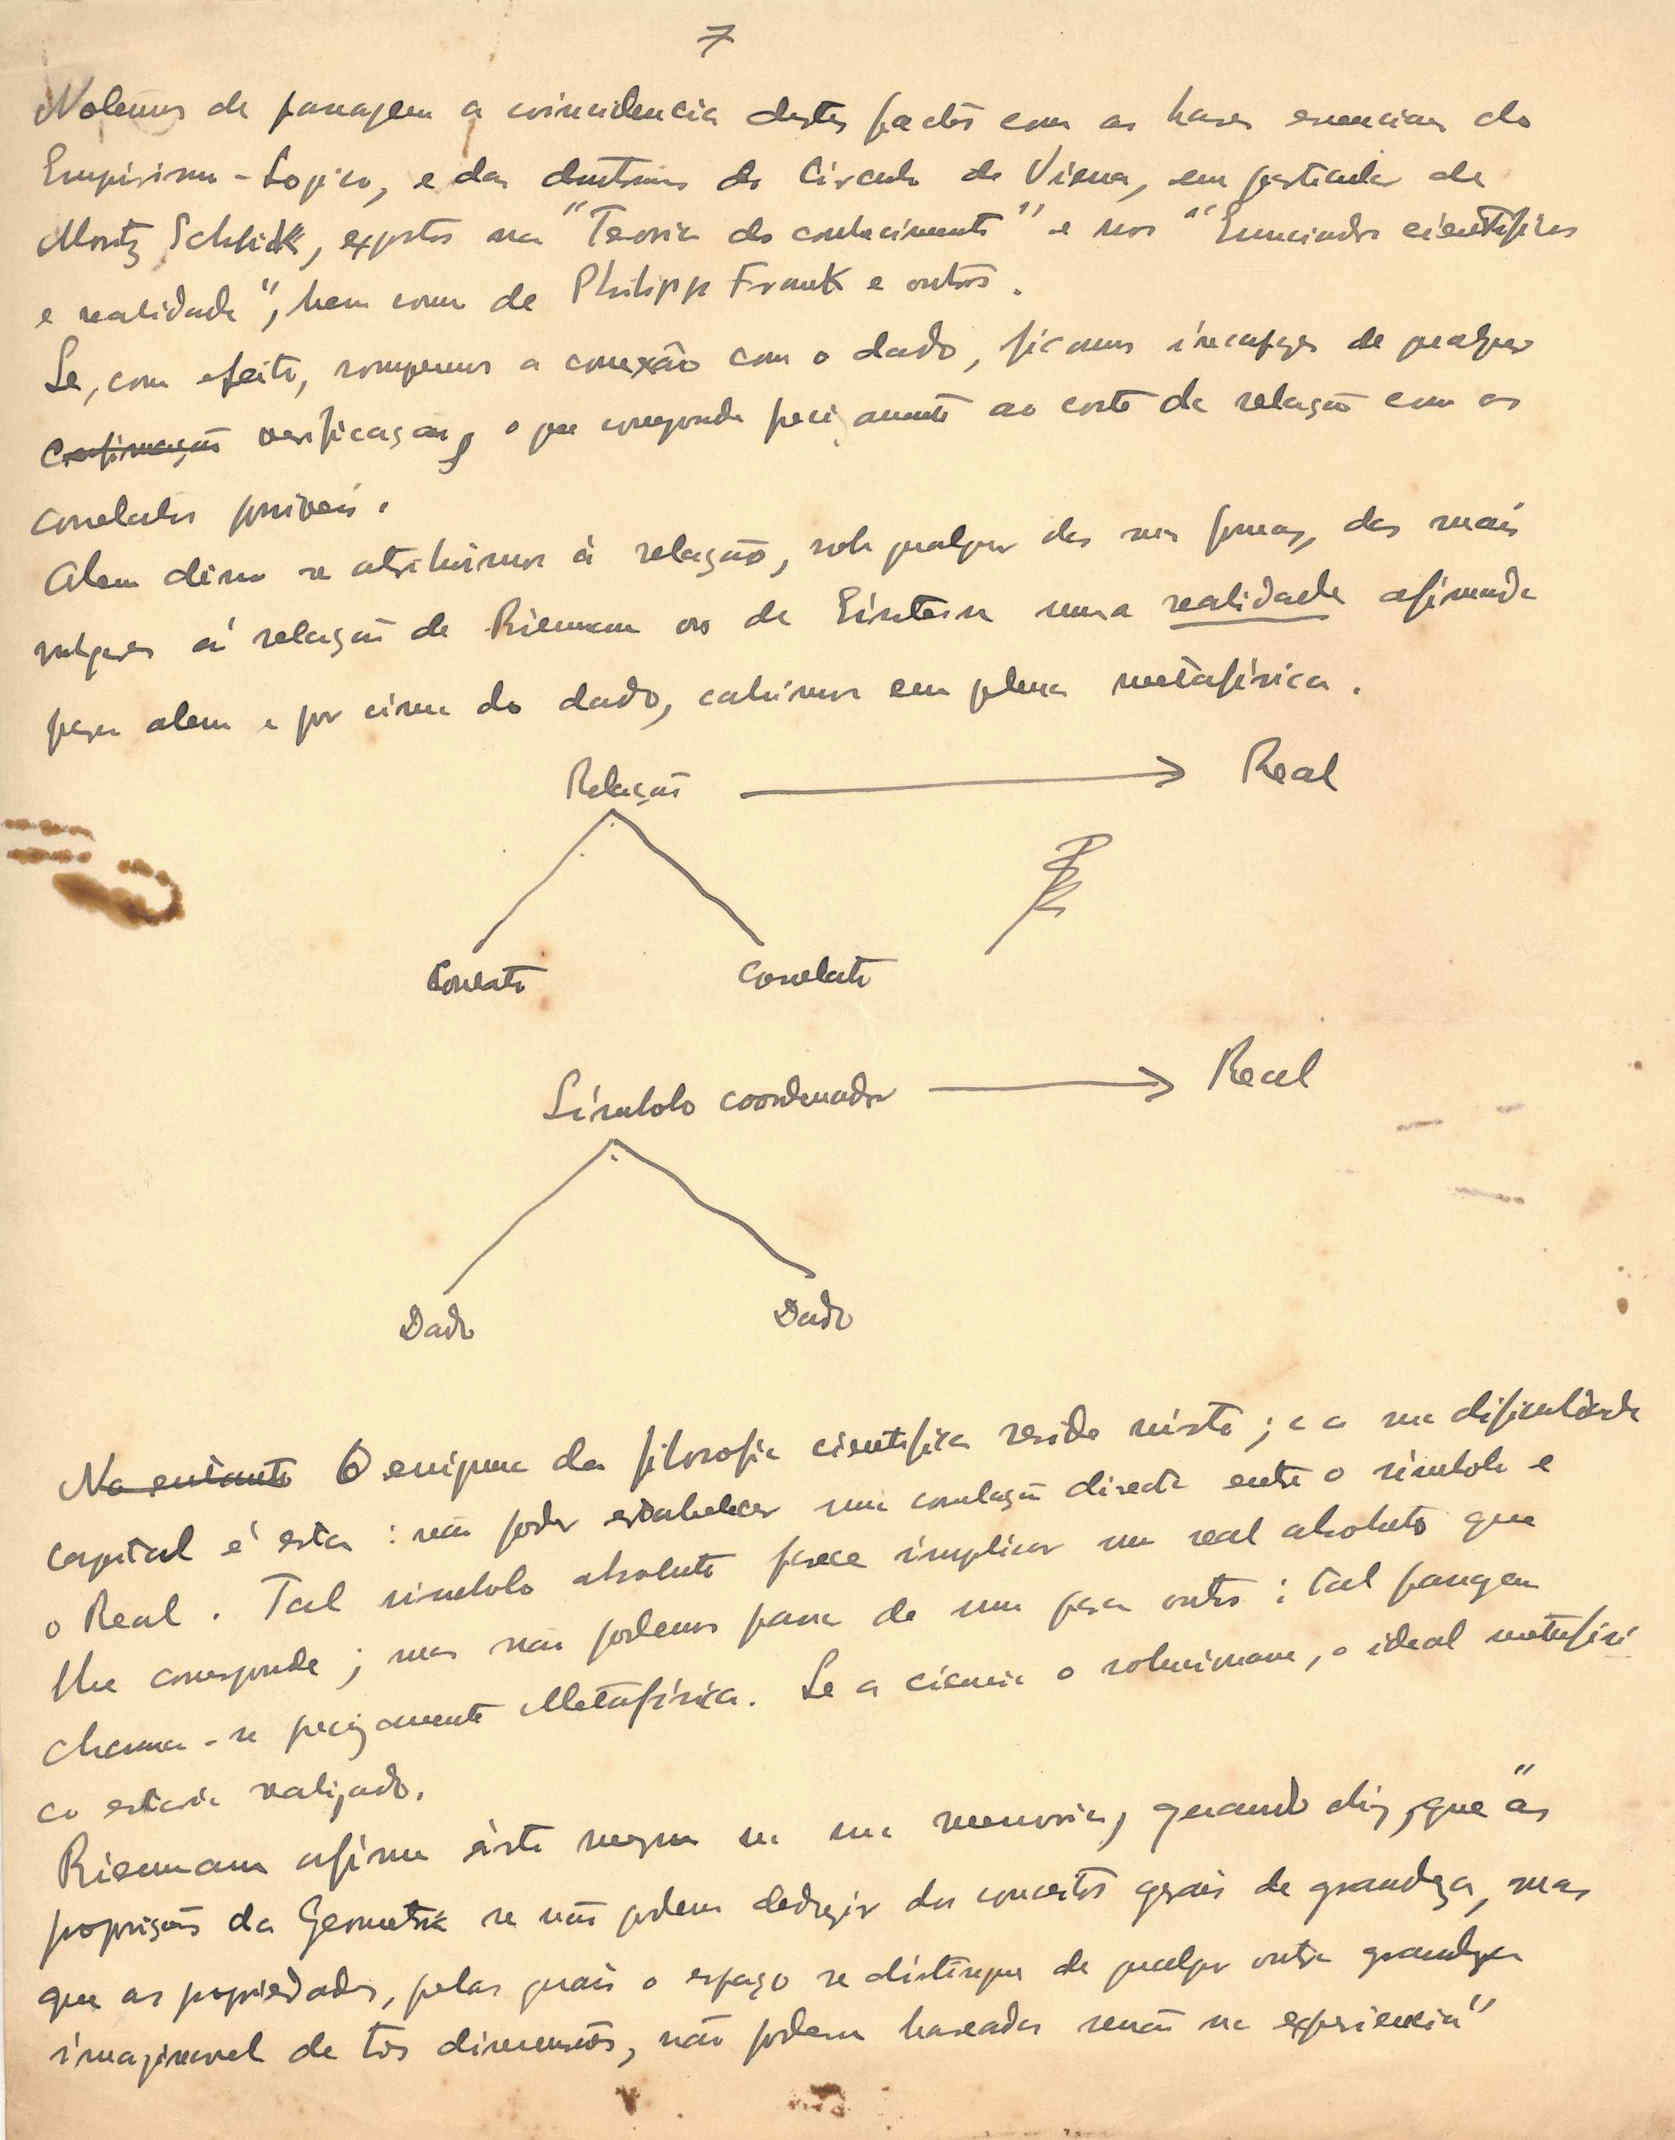 7
Notemos de passagem a coincidencia destes factos com as bases essenciais do
Empirismo-Logico, e das doutrinas do Circulo de Viena, em particular de
Moritz Schlick, expostas na "Teoria do conhecimento" e nos "Enunciados cientificos
e realidade", bem como de Philipp Frank e outros.
Se, com efeito, rompemos a conexão com o dado, ficamos incapazes de qualquer
Confirmação verificação, o que corresponde precizamente ao corte da relação com os
correlatos possiveis.
Alem disso se atribuirmos á relação, sob qualquer das suas formas, das mais
vulgares á relação de Riemann ou de Einstein uma realidade afirmada
para alem e por cima do dado, cahimos em plena metafísica.
Relação → Real
Correlato Correlato
Símbolo coordenador → Real
Dado Dado
No entanto O enigma da filosofia cientifica reside nisto; e a sua dificuldade
capital é esta: não poder estabelecer uma correlação directa entre o simbolo e
o Real. Tal simbolo absoluto parece implicar um real absoluto que
lhe corresponde; mas não podemos passar de um para outro: tal passagem
chama-se precizamente Metafísica. Se a ciencia o solucionasse, o ideal metafísi
co estaria realizado.
Riemann afirma isto mesmo na sua memoria, quando diz, que "as
proposições da Geometria se não podem deduzir dos conceitos gerais de grandeza, mas
que as propriedades, pelas quais o espaço se distingue de qualquer outra grandeza
imaginavel de tres dimensões, não podem baseadas senão na experiencia"